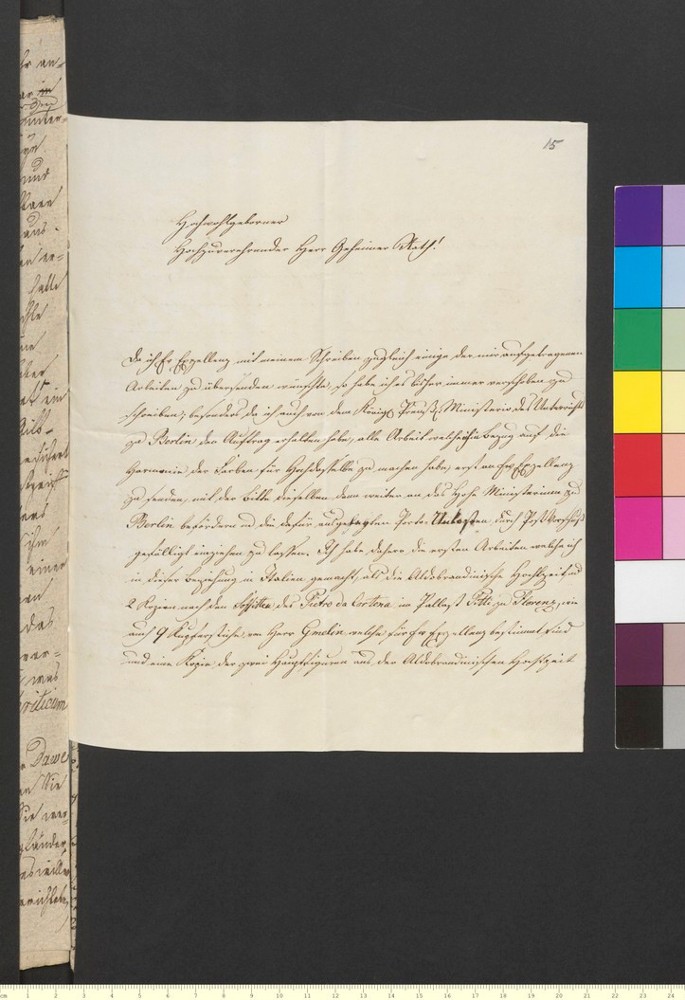 15
Hochwohlgeborner
Hochzuverehrender Herr Geheimer Rath!
Da ich Ew Exzellenz mit meinem Schreiben zugleich einige der mir aufgetragenen
Arbeiten zu übersenden wünschte, so habe ich es bisher immer verschoben zu
schreiben; besonders da ich auch von dem Königl. Preuß. Ministerio des Unterrichts
zu Berlin den Auftrag erhalten habe, alle Arbeit welche in Bezug auf die
Harmonie der Farben für Hochdasselbe zu machen habe, erst an Ew Exzellenz
zu senden, mit der Bitte dieselben dann weiter an das Hohe Ministerium zu
Berlin befördern und die dafür ausgelegten Porto Unkosten durch Post Vorschuß
gefälligst einziehen zu lassen. Ich habe daher die ersten Arbeiten welche ich
in dieser Beziehung in Italien gemacht, als die Aldobrandinische Hochzeit und
2 Kopien nach den Soffitten des Pietro da Cortona im Pallast Pitti zu Florenz, wie
auch 9 Kupferstiche von Herr Gmelin welche für Ew Exzellenz bestimmt sind
und eine Kopie der zwei Hauptfiguren aus der Aldobrandinischen Hochzeit